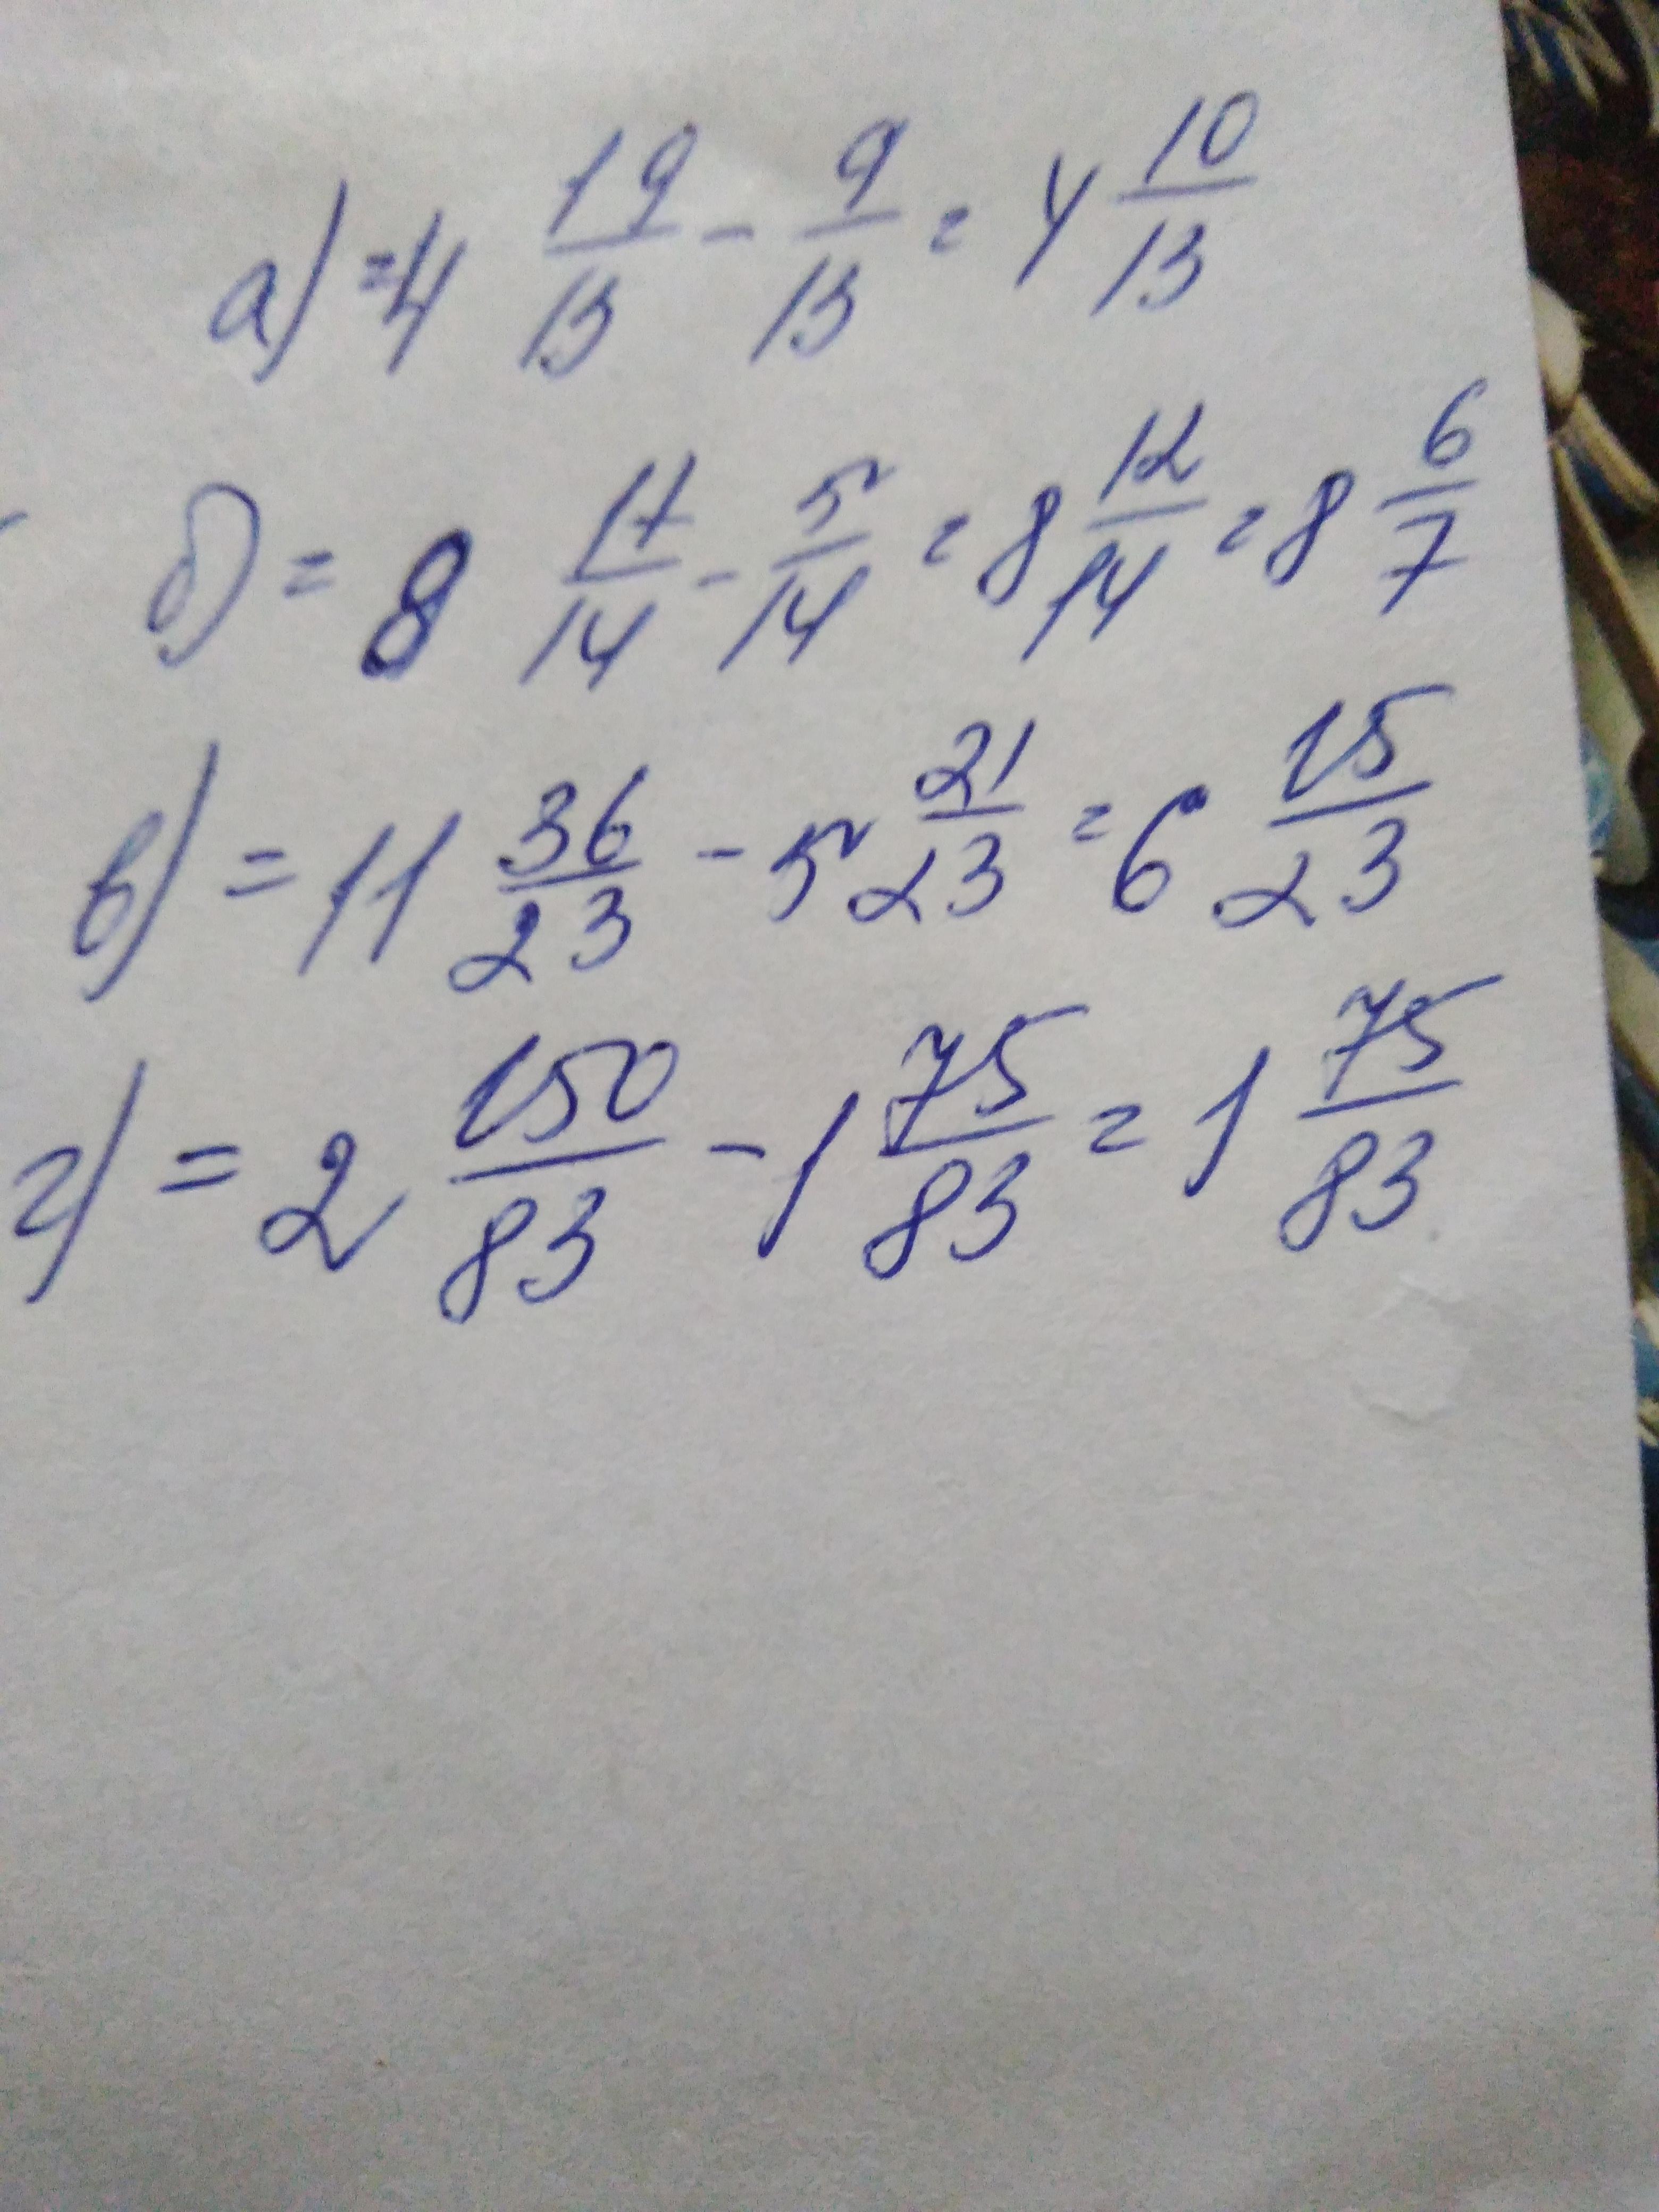 а) = 4 19/13 - 9/13 = 4 10/13
б) = 8 17/14 - 5/14 = 8 12/14 = 8 6/7
в) = 11 36/23 - 5 21/23 = 6 15/23
г) = 2 150/83 - 1 75/83 = 1 75/83